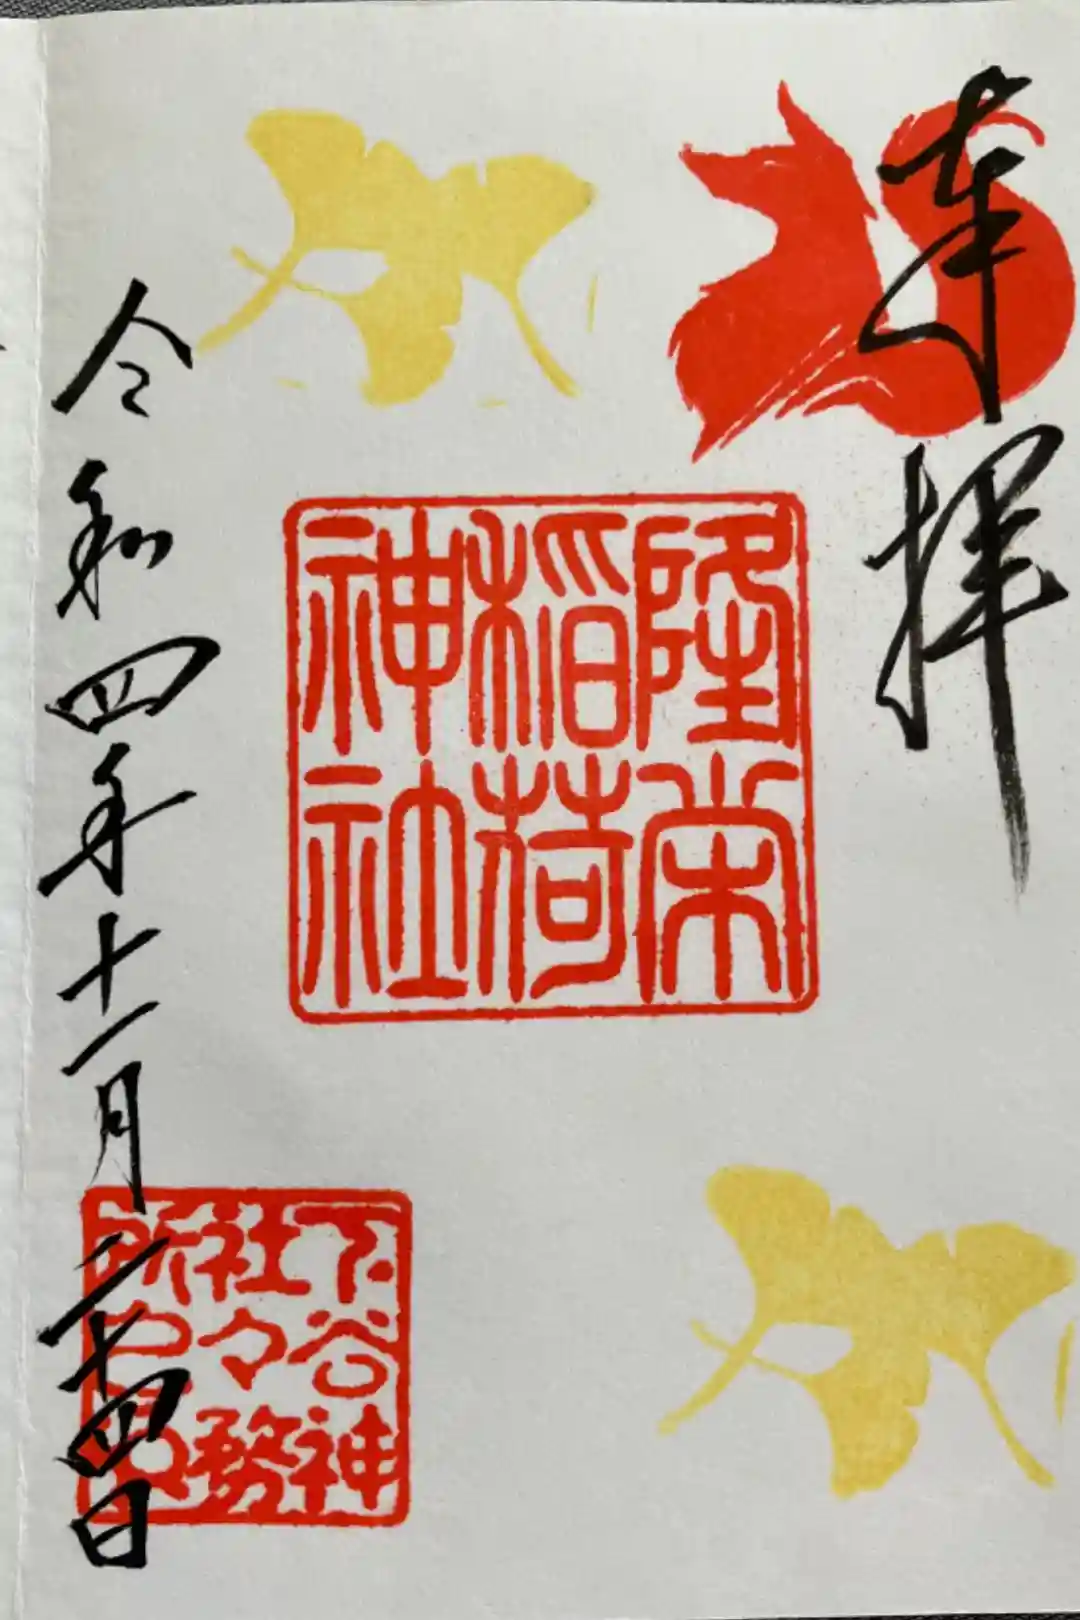 奉拝
隆栄
稲荷
神社
下谷神
社々務
所
令和四年十一月二十四日